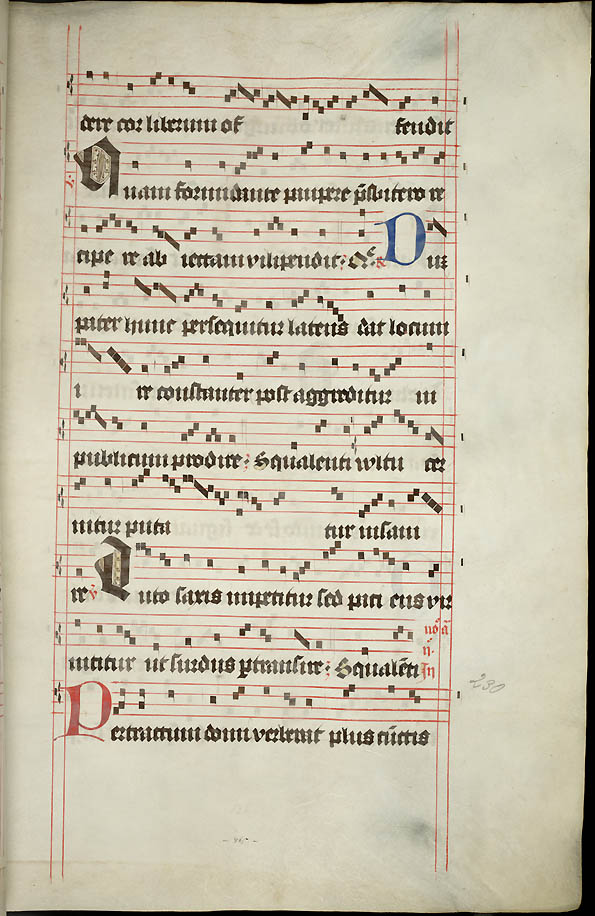 cere cor liberum of fendit
Quam formidante paupere p̄sbitero re
cipe re ab iectam vilipendit: Dup
piter hunc persequitur latens dat locum
i re constanter post aggreditur in
publicum prodire: Squalenti wltu cer
nitur puta tur insani
re v̄ Luto saxis impetitur sed pati eius vir
tutitur ut surdus ptransire: Squalēti In
Pertractum domi verberat plus cūctis
230